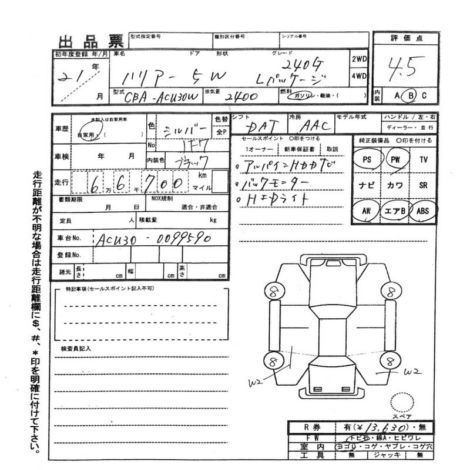 出品票
型式指定番号
類別区分番号
シリアル番号
評価点
4.5
内装 A B C
初年度登録 年/月
車名
ドア 形状
グレード
21年
月
ハリアー 5W
240G
Lパッケージ
2WD
4WD
型式
CBA-ACU30W
排気量
2400
燃料
ガソリン・軽油・( )
車歴
自家用( )
色
シルバー
No
1F7
内装色
ブラック
色替
全P
シフト
DAT
冷房
AAC
モデル年式
ハンドル / 左・右
ディーラー・並行
車検
年 月
走行
6万6千700
km
マイル
セールスポイント ○印を付ける
1オーナー 新車保証書 取説
○アルパインHDナビTV
○バックモニター
○HIDライト
純正装備品 ○印を付ける
PS PW TV
ナビ カワ SR
AW エアB ABS
書類期限
月 日
NOX規制
適合・非適合
定員
人
積載量
kg
車台No.
ACU30-0099590
登録No.
諸元
長さ
cm
幅
cm
高さ
cm
特記事項(セールスポイント記入不可)
検査員記入
8
8
8
8
W2
W2
スペア
R券
有(¥13,630)・無
FW
トビ石・線A・ヒビワレ
室内
ヨゴレ・コゲ・ヤブレ・コゲ穴
工具
無
ジャッキ
無
走行距離が不明な場合は走行距離欄に$、#、*印を明確に付けて下さい。